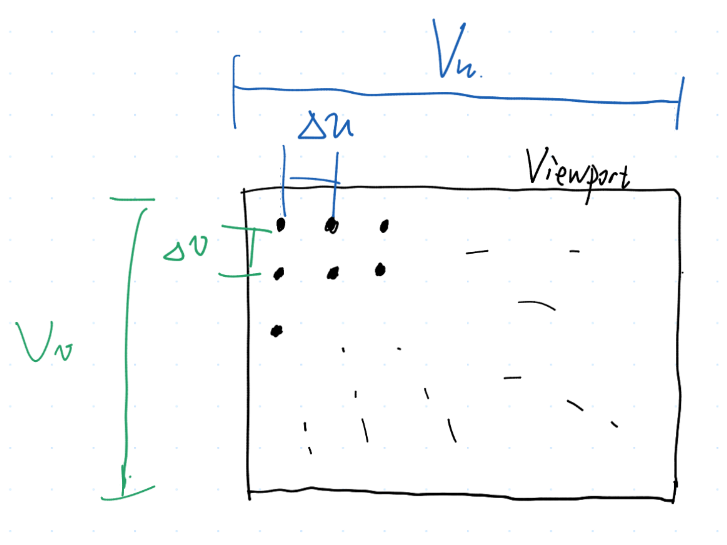 Vu.
Δu
Viewport
Δv
Vv